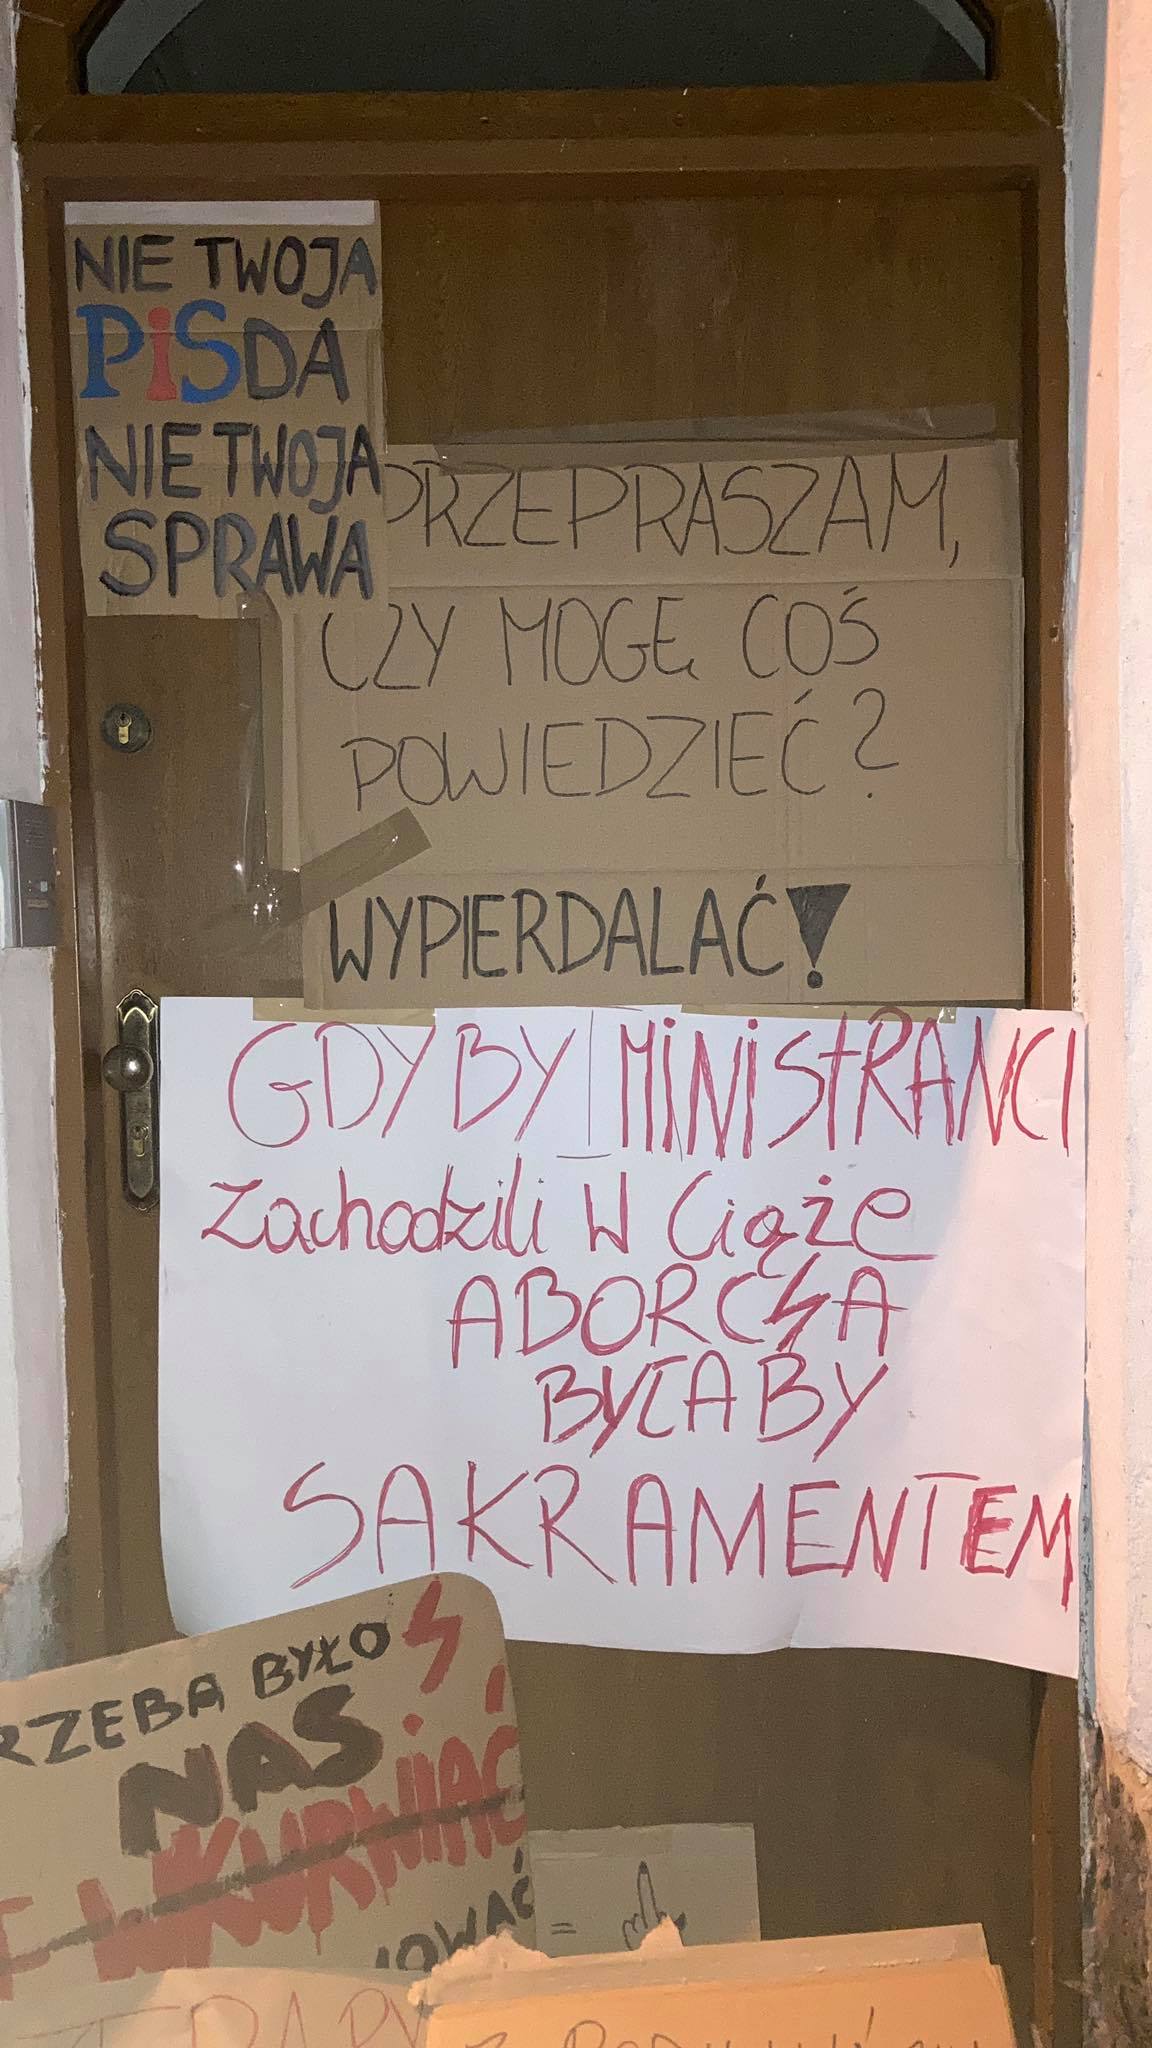 NIE TWOJA
PiSDA
NIE TWOJA
SPRAWA
PRZEPRASZAM,
CZY MOGĘ COŚ
POWIEDZIEĆ?
WYPIERDALAĆ!
GDYBY MiNiStRANCI
Zachodzili W Ciążę
ABORCJA
BYŁABY
SAKRAMENTEM
RZEBA BYŁO
NAS
WKURWIAĆ
=